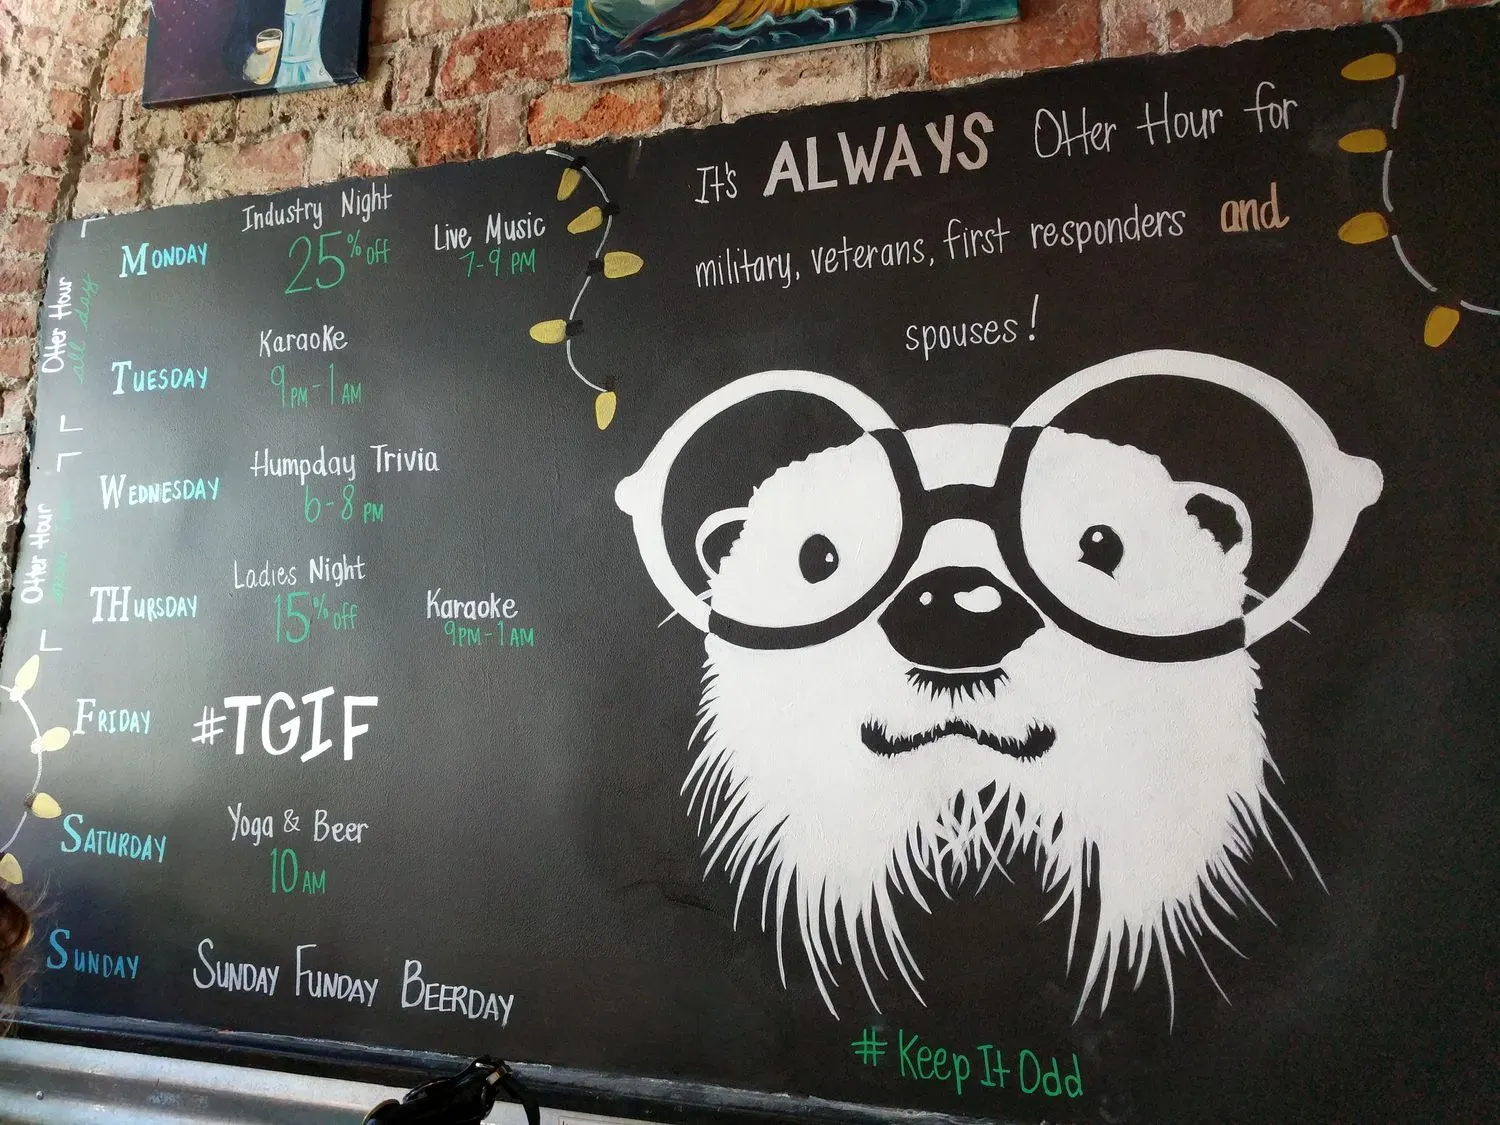 It's ALWAYS Otter Hour for
military, veterans, first responders and
spouses!
Otter Hour
all day
MONDAY
Industry Night
25% off
Live Music
7-9 PM
TUESDAY
Karaoke
9PM-1AM
Otter Hour
WEDNESDAY
Humpday Trivia
6-8 PM
THURSDAY
Ladies Night
15% off
Karaoke
9PM-1AM
FRIDAY
#TGIF
SATURDAY
Yoga & Beer
10 AM
SUNDAY
SUNDAY FUNDAY BEERDAY
# Keep It Odd